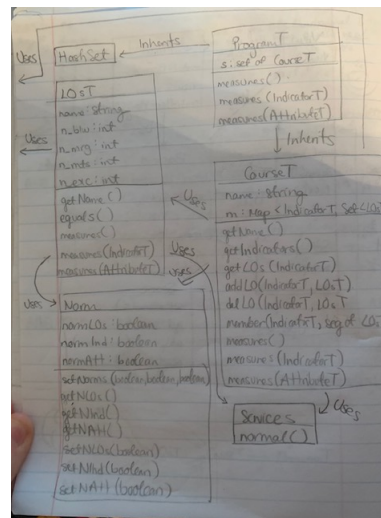 Uses
HashSet
Inherits
ProgramT
s: set of CourseT
measures()
measures(IndicatorT)
measures(AttributeT)
Inherits
LOsT
name: string
n_blw: int
n_mrg: int
n_mts: int
n_exc: int
getName()
equals()
measures()
measures(IndicatorT)
measures(AttributeT)
Uses
Uses
Uses
Uses
Uses
CourseT
name: string
m: Map <IndicatorT, Set<LOs
getName()
getIndicators()
getLOs(IndicatorT)
addLO(IndicatorT, LOsT)
delLO(IndicatorT, LOsT
member(IndicatorT, seq of LOs
measures()
measures(IndicatorT)
measures(AttributeT)
Uses
Norm
normLOs: boolean
normInd: boolean
normAtt: boolean
setNorms(boolean, boolean, boolean)
getNLOs()
getNInd()
getNAtt()
setNLOs(boolean)
setNInd(boolean)
setNAtt(boolean)
Services
normal()